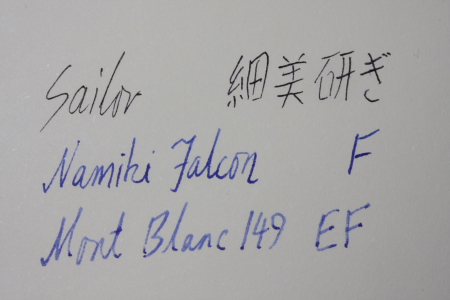 Sailor 細美研ぎ
Namiki Falcon F
Mont Blanc 149 EF